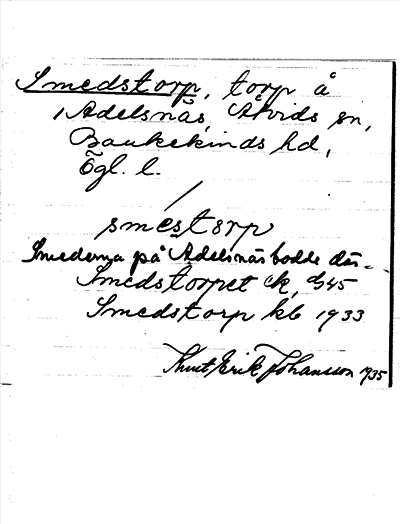 Smedstorp, torp å
Adelsnäs, Åtvids sn,
Bankekinds hd,
Ögl. l.
smestorp
Smederna på Adelsnäs bodde där.
Smedstorpet ck, G45
Smedstorp kb 1933
Knut Erik Johansson 1935